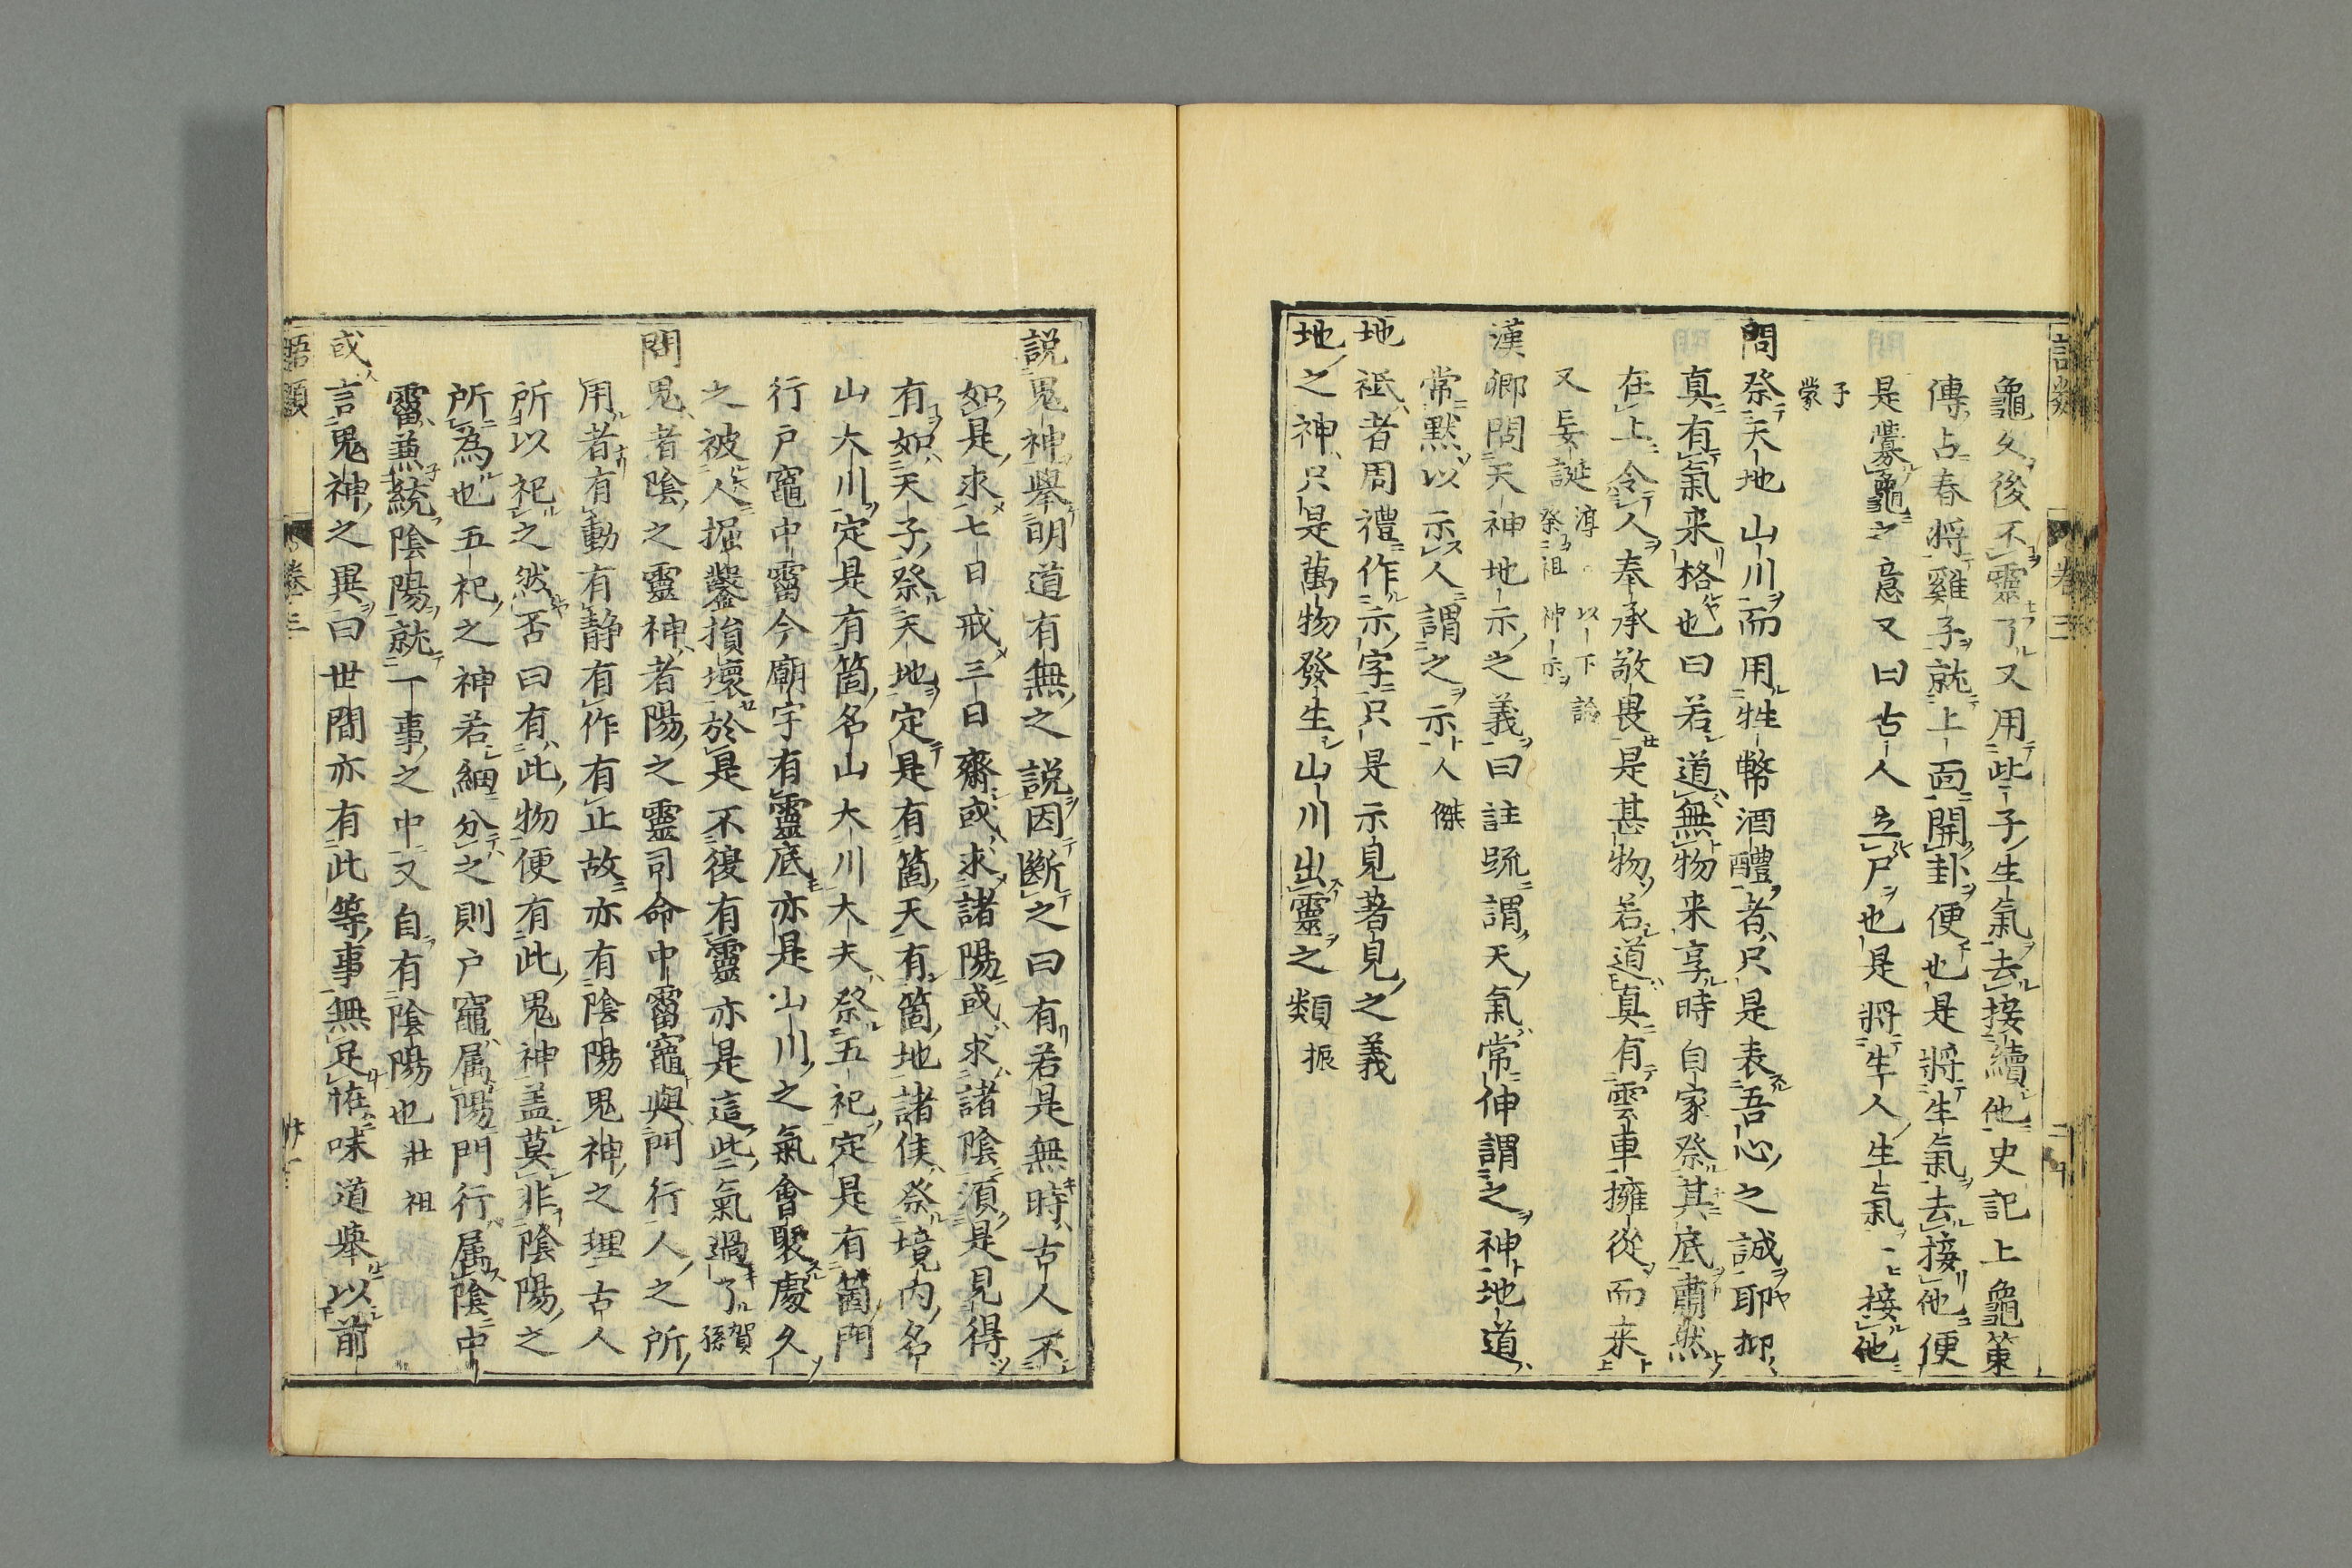 語類 卷三
龜久後不靈了又用些子生氣去接續他史記上龜策
傳占春將雞子就上面開卦便也是將生氣去接他便
是釁龜之意又曰古人立尸也是將生人生氣去接他
子蒙
問祭天地山川而用牲幣酒醴者只是表吾心之誠耶抑
真有氣来格也曰若道無物来享時自家祭甚底肅然
在上令人奉承敬畏是甚物若道真有雲車擁從而来
又妄誕 淳 以下論祭祖神示
漢卿問天神地示之義曰註疏謂天氣常伸謂之神地道
常黙以示人謂之示 人傑
地祗者周禮作示字只是示見著見之義
地之神只是萬物發生山川出靈之類 振
説鬼神舉明道有無之説因斷之曰有若是無時古人不
如是求七日戒三日齋或求諸陽或求諸陰須是見得
有如天子祭天地定是有箇天有箇地諸侯祭境内名
山大川定是有箇名山大川大夫祭五祀定是有箇門
行戸竈中霤今廟宇有靈底亦是山川之氣會聚處久
之被人掘鑿損壞於是不復有靈亦是這些氣過了 賀孫
問鬼者陰之靈神者陽之靈司命中霤竈與門行人之所
用者有動有静有作有止故亦有陰陽鬼神之理古人
所以祀之然否曰有此物便有此鬼神盖莫非陰陽之
所為也五祀之神若細分之則户竈属陽門行属陰中
霤兼統陰陽就一事之中又自有陰陽也 壯祖
或言鬼神之異曰世間亦有此等事無足恠味道舉以前
語類 卷三 廿一